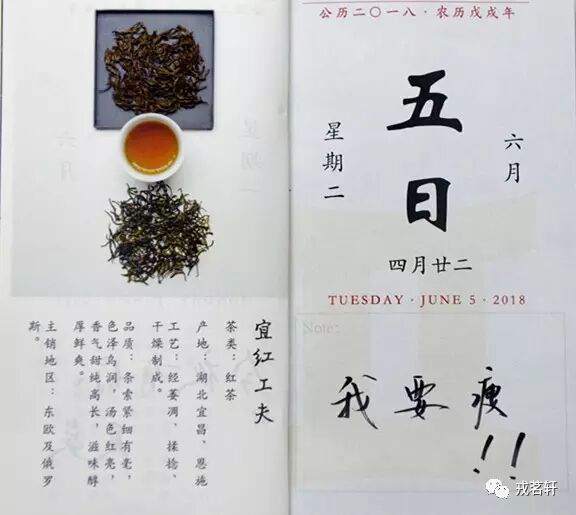 宜红工夫
茶类：红茶
产地：湖北宜昌、恩施
工艺：经萎凋、揉捻、
干燥制成。
品质：条索紧细有毫，
色泽乌润，汤色红亮，
香气甜纯高长，滋味醇
厚鲜爽。
主销地区：东欧及俄罗
斯。
公历二〇一八·农历戊戌年
六月
五日
星期二
四月廿二
TUESDAY · JUNE 5 · 2018
Note:
我要瘦!!
戎茗轩